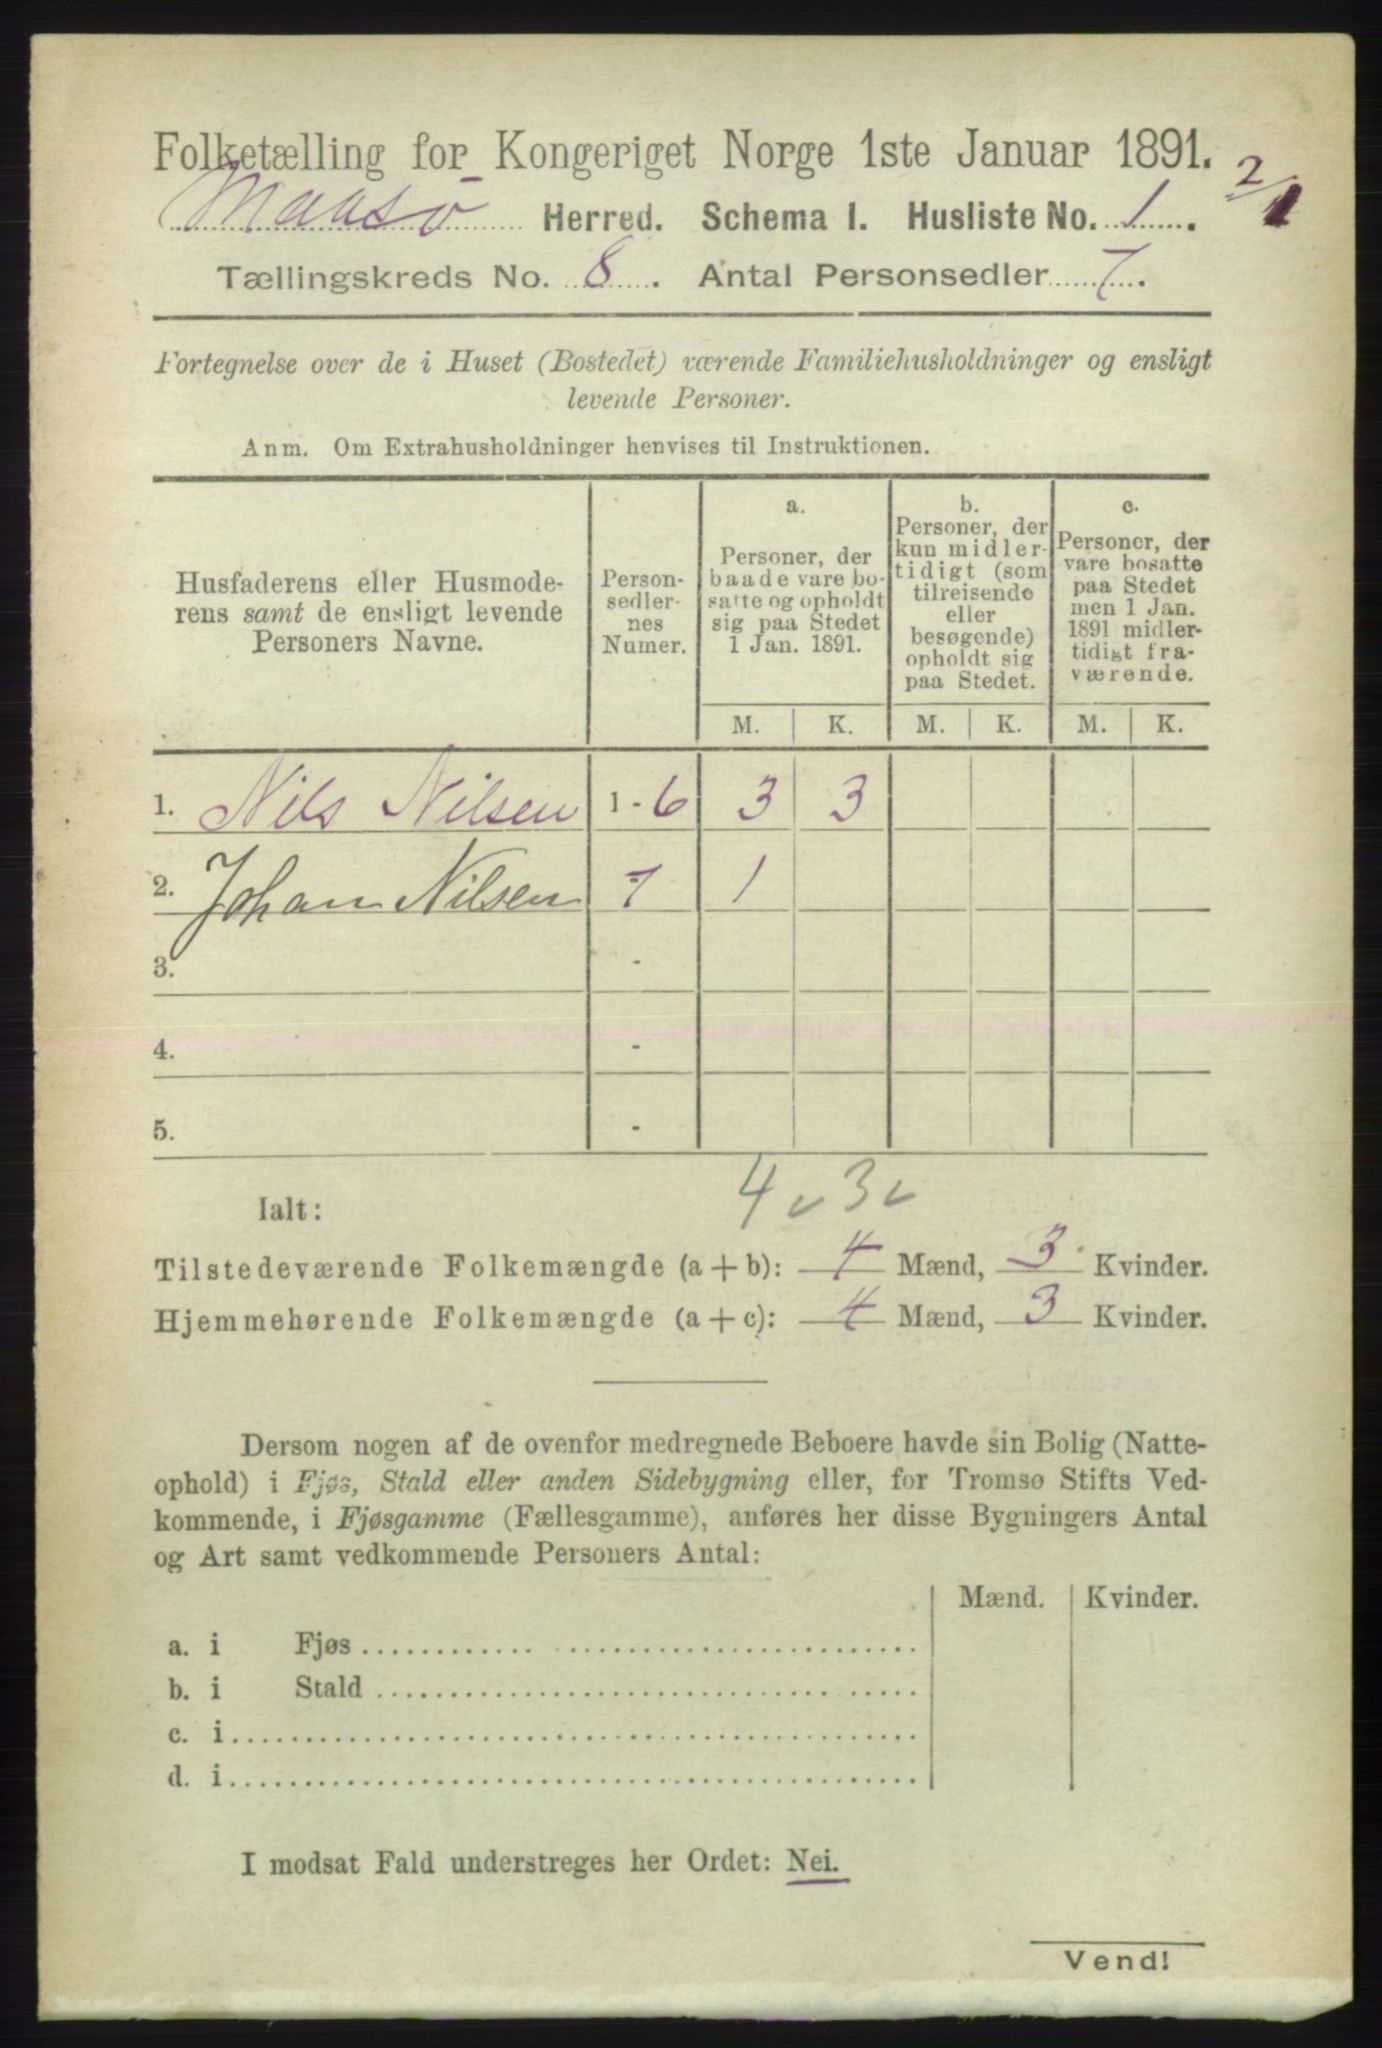 Folketælling for Kongeriget Norge 1ste Januar 1891.
Maasø Herred. Schema 1. Husliste No. 1. 2/1
Tællingskreds No. 8. Antal Personsedler 7.
Fortegnelse over de i Huset (Bostedet) værende Familiehusholdninger og ensligt
levende Personer.
Anm. Om Extrahusholdninger henvises til Instruktionen.
Husfaderens eller Husmode-
rens samt de ensligt levende
Personers Navne.
Person-
sedler-
nes
Numer.
a.
Personer, der
baade vare bo-
satte og opholdt
sig paa Stedet
1 Jan. 1891.
b.
Personer, der
kun midler-
tidigt (som
tilreisende
eller
besøgende)
opholdt sig
paa Stedet.
c.
Personer, der
vare bosatte
paa Stedet
men 1 Jan.
1891 midler-
tidigt fra-
værende.
M. K. M. K. M. K.
1. Nils Nilsen 1 - 6 3 3
2. Johan Nilsen 7 1
3. -
4. -
5. -
4 v 3 v
Ialt:
Tilstedeværende Folkemængde (a + b): 4 Mænd, 3 Kvinder.
Hjemmehørende Folkemængde (a + c): 4 Mænd, 3 Kvinder.
Dersom nogen af de ovenfor medregnede Beboere havde sin Bolig (Natte-
ophold) i Fjøs, Stald eller anden Sidebygning eller, for Tromsø Stifts Ved-
kommende, i Fjøsgamme (Fællesgamme), anføres her disse Bygningers Antal
og Art samt vedkommende Personers Antal:
Mænd. Kvinder.
a. i Fjøs
b. i Stald
c. i
d. i
I modsat Fald understreges her Ordet: Nei.
Vend!